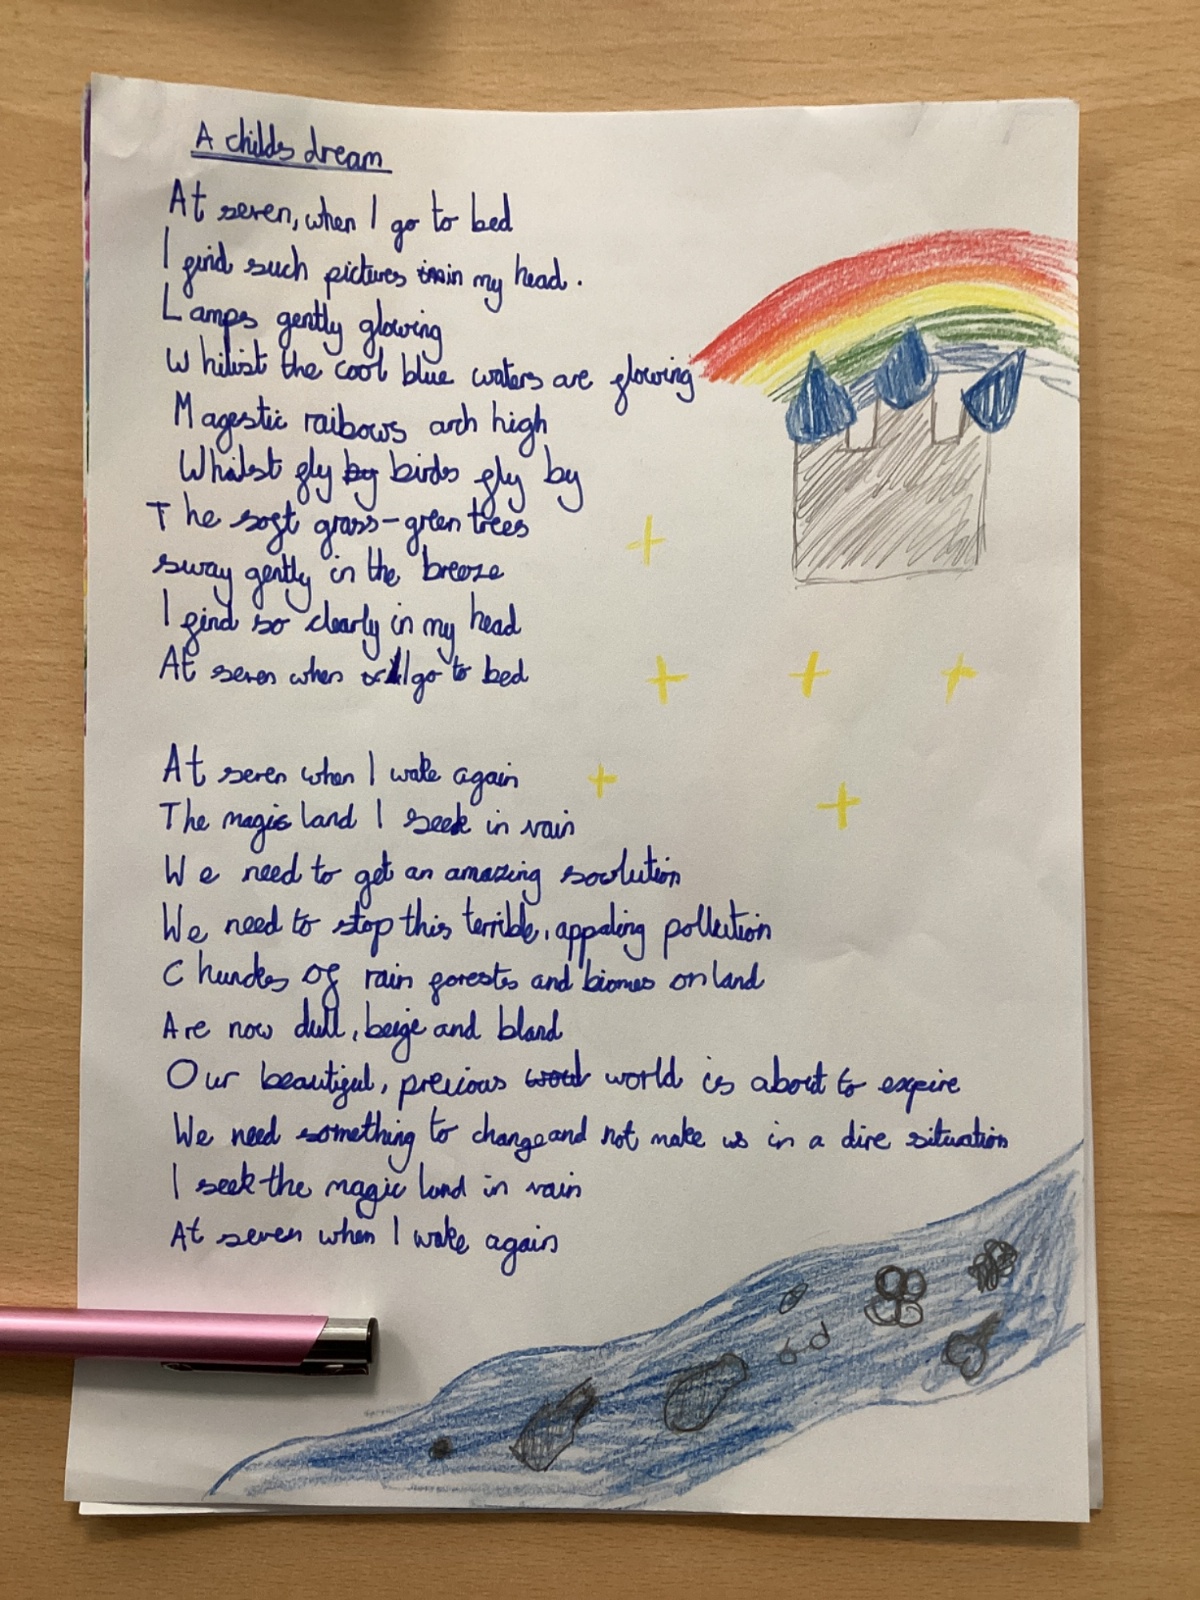 A childs dream
At seven, when I go to bed
I find such pictures in my head.
Lamps gently glowing
Whilist the cool blue waters are flowing
Magestic raibows arch high
Whilst fly by birds fly by
The soft grass-green trees
sway gently in the breeze
I find so clearly in my head
At seven when I go to bed
At seven when I wake again
The magic land I seek in vain
We need to get an amazing soulution
We need to stop this terrible, appaling pollution
Chuncks of rain forests and biomes on land
Are now dull, beige and bland
Our beautiful, precious world is about to expire
We need something to change and not make us in a dire situation
I seek the magic land in vain
At seven when I wake again